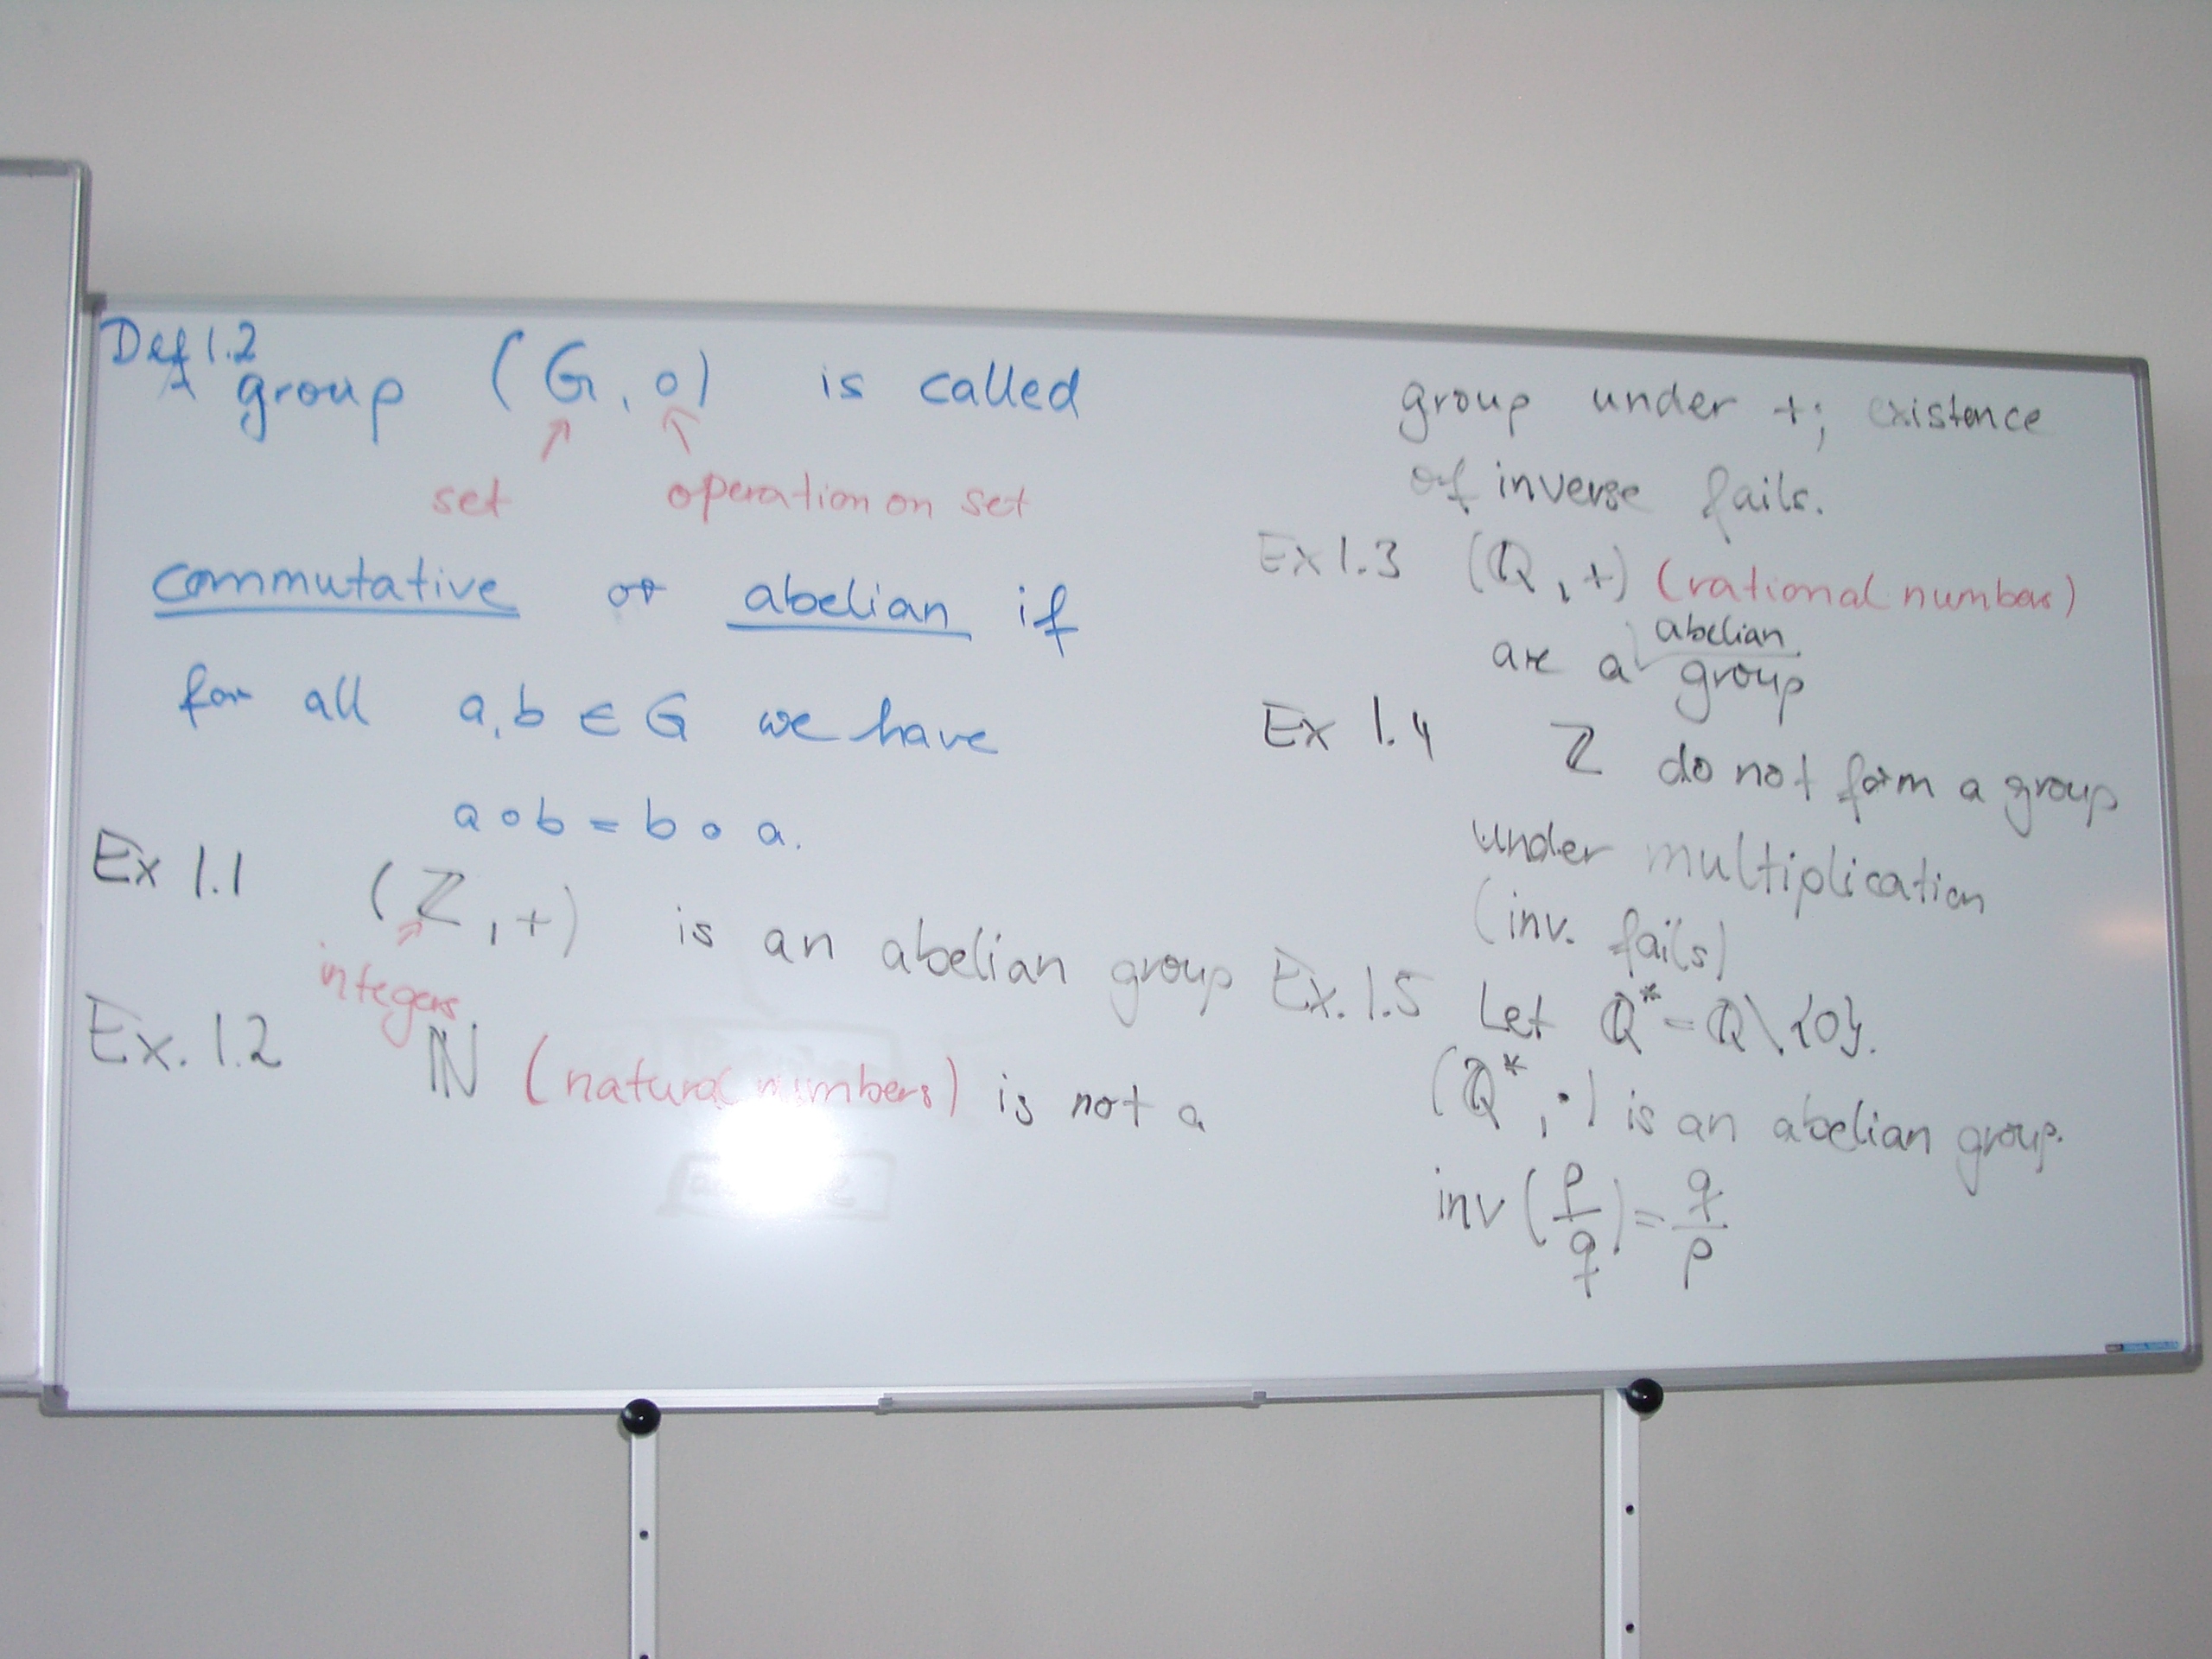 Def 1.2
A group (G, ∘) is called
set operation on set
commutative or abelian if
for all a, b ∈ G we have
a ∘ b = b ∘ a.
Ex 1.1 (ℤ, +) is an abelian group
integers
Ex. 1.2 ℕ (natural numbers) is not a
group under +; existence
of inverse fails.
Ex 1.3 (ℚ, +) (rational numbers)
are a abelian group
Ex 1.4 ℤ do not form a group
under multiplication
(inv. fails)
Ex. 1.5 Let ℚ* = ℚ \ {0}.
(ℚ*, ·) is an abelian group.
inv (p/q) = q/p